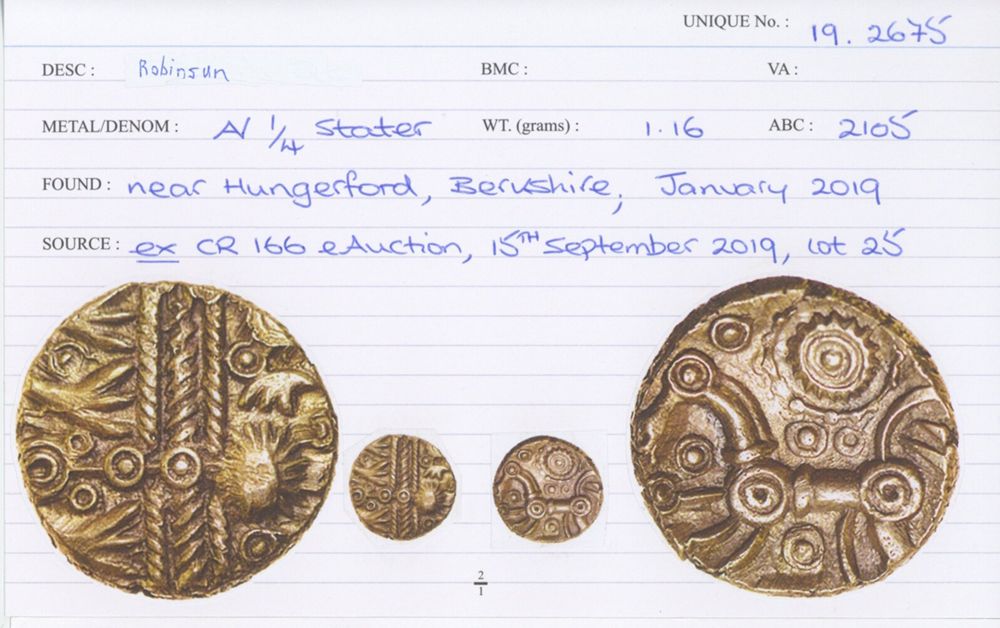 UNIQUE No. : 19. 2675
DESC : Robinsun BMC : VA :
METAL/DENOM : A/ 1/4 Stater WT. (grams) : 1.16 ABC : 2105
FOUND : near Hungerford, Berkshire, January 2019
SOURCE : ex CR 166 eAuction, 15TH September 2019, lot 25
2
1